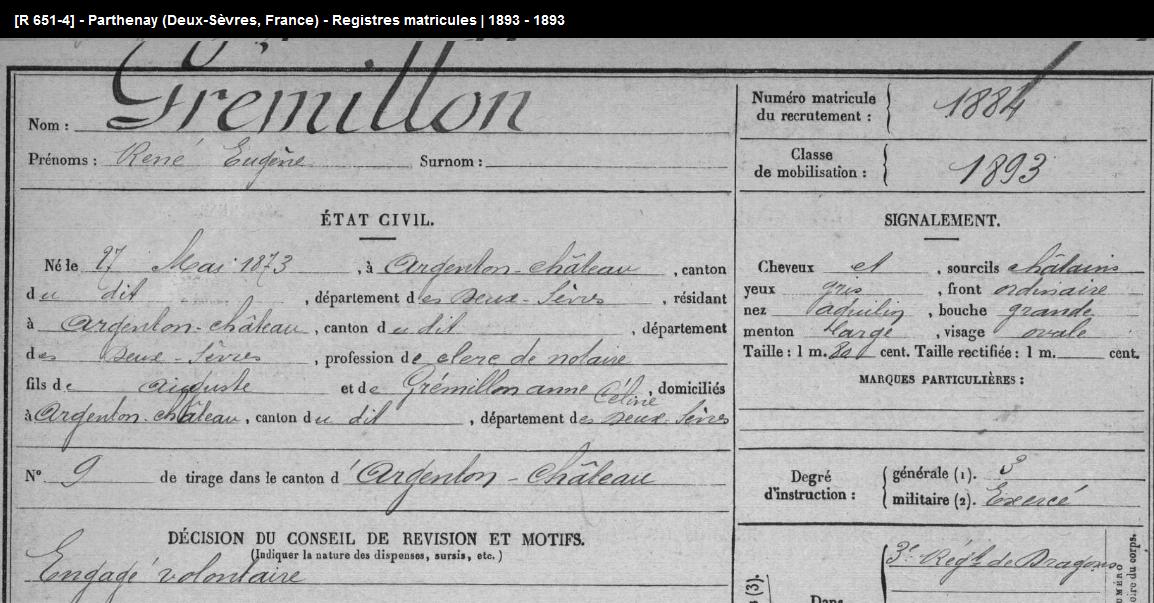 [R 651-4] - Parthenay (Deux-Sèvres, France) - Registres matricules | 1893 - 1893
Nom : Grémillon
Prénoms : René Eugène Surnom :
Numéro matricule du recrutement : 1884
Classe de mobilisation : 1893
ÉTAT CIVIL.
Né le 27 Mai 1873, à Argenton-château, canton
du dit, département des Deux-Sèvres, résidant
à Argenton-château, canton du dit, département
des Deux-Sèvres, profession de clerc de notaire
fils de Auguste et de Grémillon anne Céline, domiciliés
à Argenton-château, canton du dit, département des Deux-Sèvres
N° 9 de tirage dans le canton d'Argenton-château
DÉCISION DU CONSEIL DE REVISION ET MOTIFS.
(Indiquer la nature des dispenses, sursis, etc.)
Engagé volontaire
SIGNALEMENT.
Cheveux et, sourcils châtains
yeux gris, front ordinaire
nez aquilin, bouche grande
menton large, visage ovale
Taille : 1 m. 80 cent. Taille rectifiée : 1 m. cent.
MARQUES PARTICULIÈRES :
Degré d'instruction : générale (1). 3
militaire (2). Exercé
3e Régt de Dragons
(3).
Dans
NUMÉRO
oire du corps.